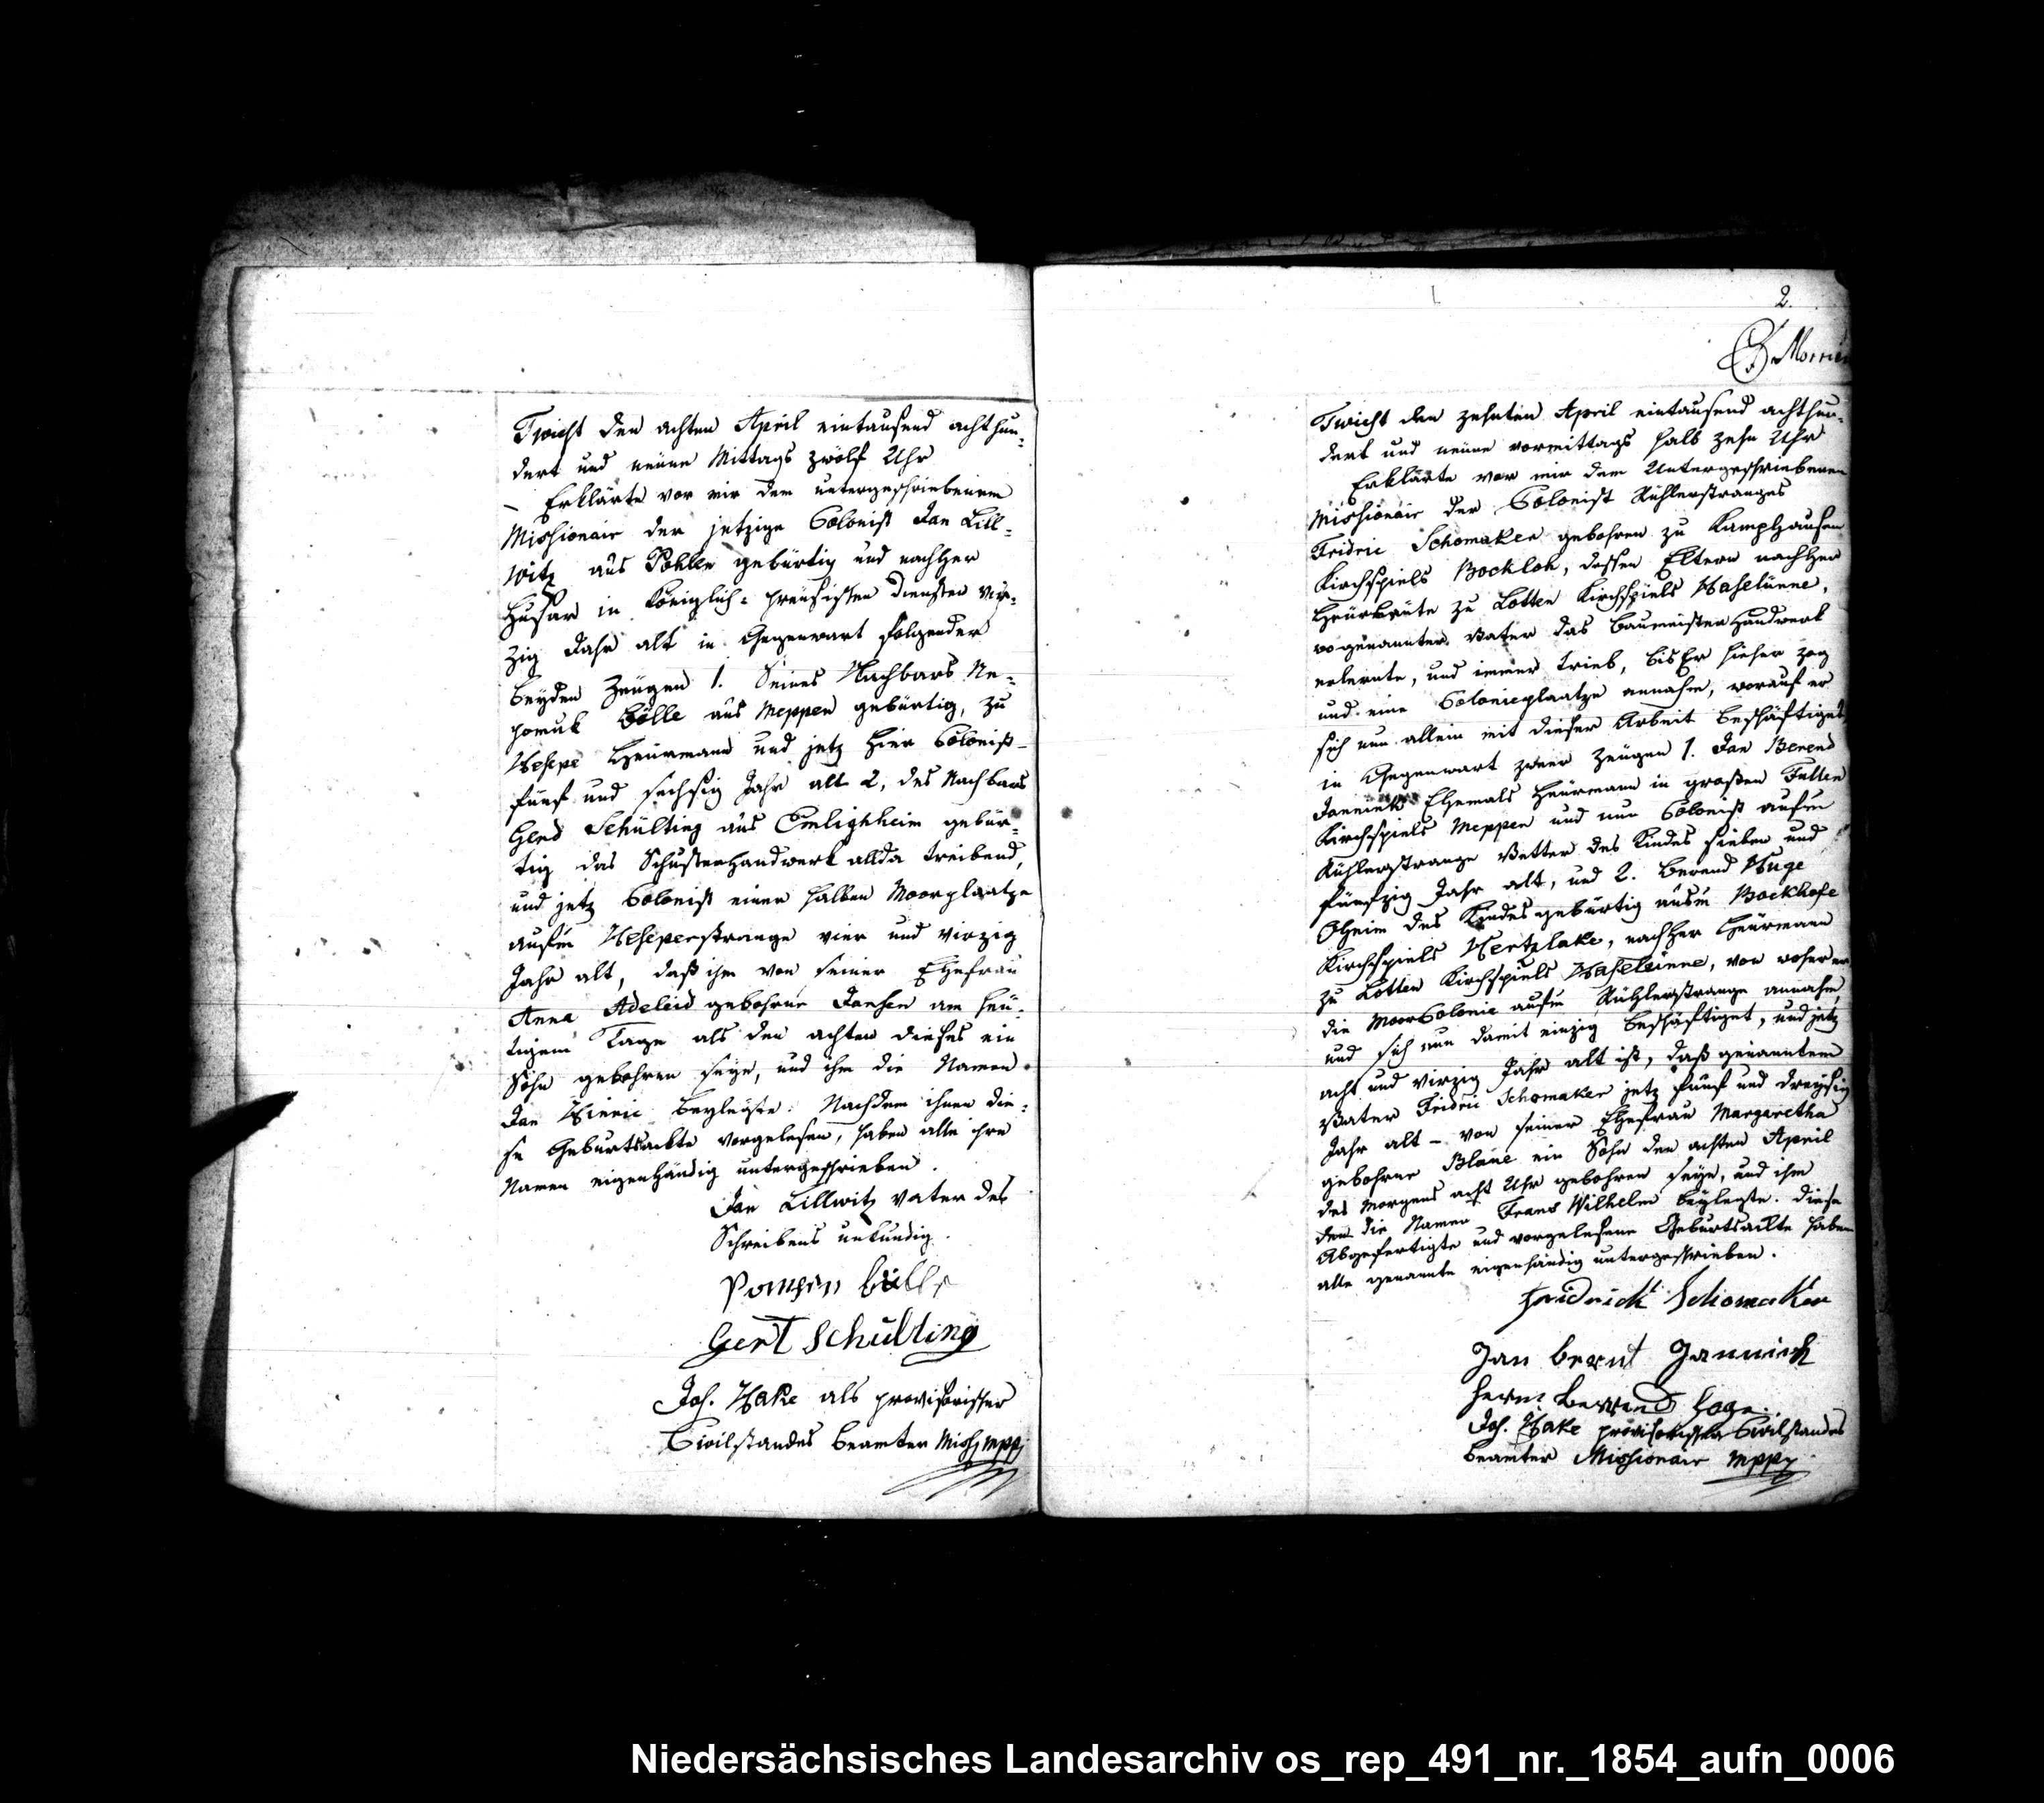 Twicht den achten April eintausend achthun-
dert und neune Mittags zwölf Uhr
Erklärte vor mir dem untergeschriebenem
Missionair der jetzige Colonist Jan Lill-
witz aus gebürtig und nachher
Husar in Königlich-preusischen Diensten vir-
zig Jahr alt in Gegenwart folgender
beyden Zeugen 1. Seines Nachbars Ne-
pomuk Bölle aus Meppen gebürtig, zu
Hesepe Heurmann und jetz hier Colonist
fünf und sechsig Jahr alt 2, des Nachbars
Gerd Schülting aus Emlighheim gebür-
tig das Schusterhandwerk allda treibend,
und jetz Colonist einer halben Moorplaatze
aufm Heseperstrange vier und virzig
Jahr alt, daß ihm von seiner Ehefrau
Anna Adeleid gebohrne Jansen am heu-
tigem Tage als den achten dieses ein
Sohn gebohren seye, und ihm die Namen
Jan Hinric beylegte. Nachdem ihnen die-
se Geburtsackte vorgelesen, haben alle ihre
Namen eigenhändig untergeschrieben.
Jan Lillwitz Vater des
Schreibens unkundig.
Gert Schulting
Joh. Hake als provisorischer
Civilstandes beamter Miss mppr
2.
Twicht den zehnten April eintausend achthun-
dert und neune vormittags halb zehn Uhr
Erklärte vor mir dem Untergeschriebenen
Missionair der Colonist Rühlerstranges
Fridric Schomaker gebohren zu Kamphausen
Kirchspiels Bockloh, dessen Eltern nachher
Heurleute zu Lotten Kirchspiels Haselünne,
wo genannter Vater das Baumeister Handwerk
erlernte, und immer trieb, bis Er hieher zog
und eine Colonieplaatze annahm, worauf er
sich nun allein mit dieser Arbeit beschäftiget
in Gegenwart zweer Zeugen 1. Jan Berend
Jannink Ehemals Heurmann in großen Fullen
Kirchspiels Meppen und nun Colonist aufm
Rühlerstrange Vetter des Kindes sieben und
fünfzig Jahr alt, und 2. Berend Huge
Oheim des Kindes gebürtig ausm Bockhofe
Kirchspiels Hertzlake, nachher Heurmann
zu Lotten Kirchspiels Haselünne, von woher er
die MoorColonie aufm Rühlerstrange annahm
und sich nun damit einzig beschäftiget, und jetz
acht und virzig Jahr alt ist, daß genanntem
Vater Fridric Schomaker jetz fünf und dreysig
Jahr alt – von seiner Ehefrau Margaretha
gebohrne Blane ein Sohn den achten April
des Morgens acht Uhr gebohren seye, und ihm
den die Namen Frans Wilhelm beylegte. Diese
Abgefertigte und vorgelesene Geburtsackte haben
alle genannte eigenhändig untergeschrieben.
Fridrick Schomaker
Jan bernt Jannink
herm berend
Joh. Hake provisorischer Civilstandes
beamter Missionair mppr
Niedersächsisches Landesarchiv os_rep_491_nr._1854_aufn_0006